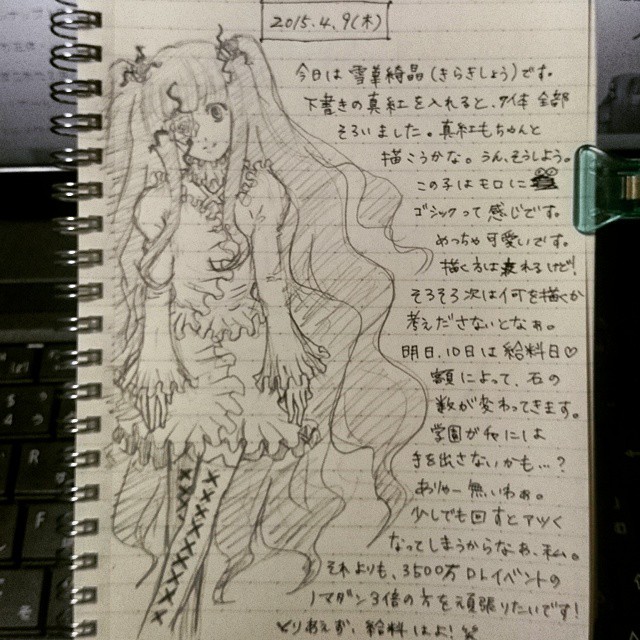 2015.4.9(木)
今日は雪華綺晶(きらきしょう)です。
下書きの真紅を入れると、7体全部
そろいました。真紅もちゃんと
描こうかな。うん、そうしよう。
この子はモロに
ゴシックって感じです。
めっちゃ可愛いです。
描くのは疲れるけど!
そろそろ次は何を描くか
考えださないとなぁ。
明日、10日は給料日♡
額によって、石の
数が変わってきます。
学園ガチャには
手を出さないかも…?
ありゃー無いわぁ。
少しでも回すとアツく
なってしまうからなぁ、私。
それよりも、3500万DLイベントの
ノマダン3倍の方を頑張りたいです!
とりあえず、給料はよ!